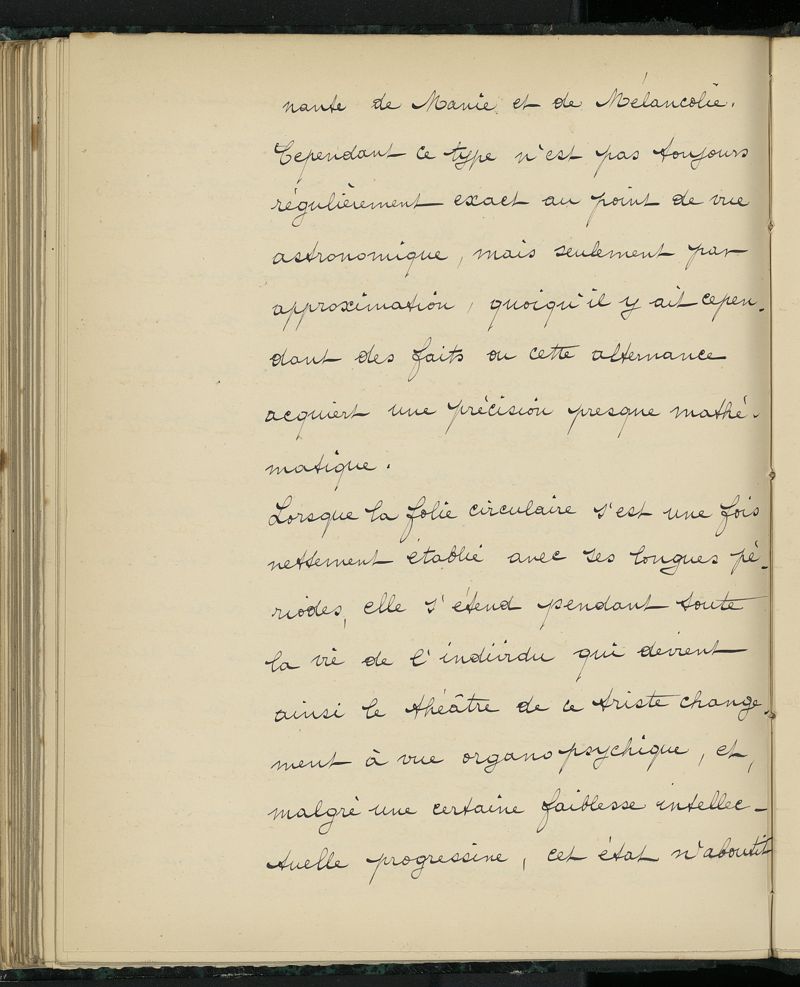 nante de Manie et de Mélancolie.
Cependant ce type n'est pas toujours
régulièrement exact au point de vue
astronomique, mais seulement par
approximation, quoiqu'il y ait cepen-
dant des faits ou cette alternance
acquiert une précision presque mathé-
matique.
Lorsque la folie circulaire s'est une fois
nettement établie avec ses longues pé-
riodes, elle s'étend pendant toute
la vie de l'individu qui devient
ainsi le théâtre de ce triste change-
ment à vue organopsychique, et,
malgré une certaine faiblesse intellec-
tuelle progressive, cet état n'aboutit